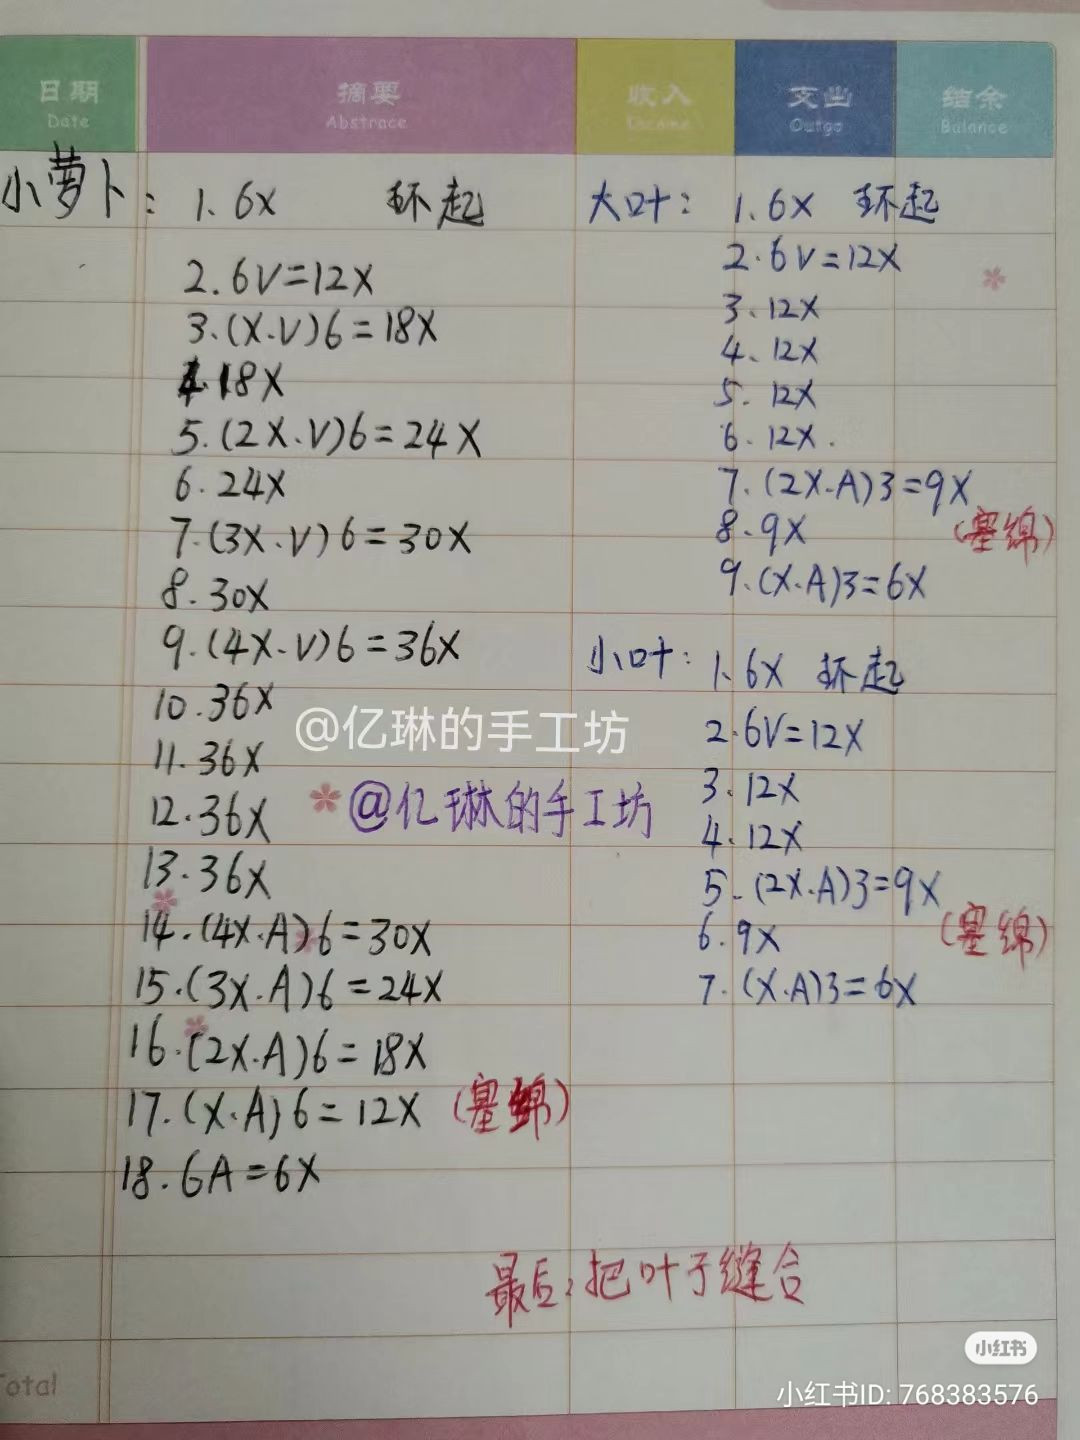 日期 摘要 收入 支出 结余
Date Abstrace Income Outgo Balance
小萝卜: 1. 6X 环起
2. 6V=12X
3. (X.V)6=18X
4. 18X
5. (2X.V)6=24X
6. 24X
7. (3X.V)6=30X
8. 30X
9. (4X.V)6=36X
10. 36X
11. 36X
12. 36X
13. 36X
14. (4X.A)6=30X
15. (3X.A)6=24X
16. (2X.A)6=18X
17. (X.A)6=12X (塞绵)
18. 6A=6X
大叶: 1. 6X 环起
2. 6V=12X
3. 12X
4. 12X
5. 12X
6. 12X.
7. (2X.A)3=9X
8. 9X (塞绵)
9. (X.A)3=6X
小叶: 1. 6X 环起
2. 6V=12X
3. 12X
4. 12X
5. (2X.A)3=9X
6. 9X (塞绵)
7. (X.A)3=6X
@亿琳的手工坊
@亿琳的手工坊
最后: 把叶子缝合
Total
小红书
小红书ID: 768383576